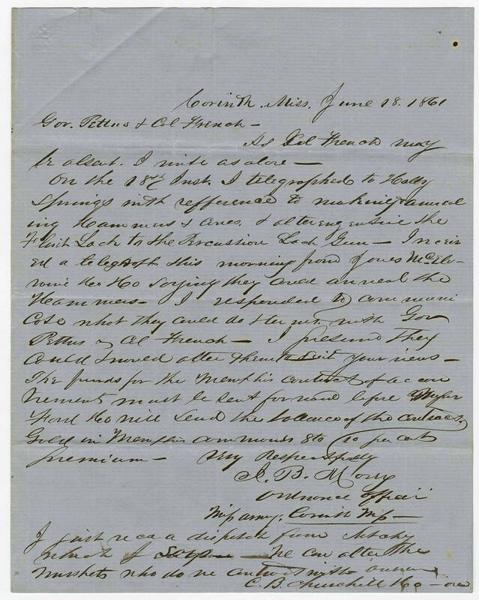 Corinth. Miss, June 18. 1861
Gov. Pettus & Col French —
As Col French may
be absent. I write as above —
On the Inst. I telegraphed to Holly
Springs with refference to making & anneal
ing Hammers & also, & altering the
Flint Lock to the Percussion Lock Gun — I receiv
ed a telegraph this morning from Jones McElw
& Co saying they could anneal the
Hammers — I responded to communi
cate what they could do & terms with Gov
Pettus & Col French — I presume they
could & would alter them your views —
The funds for the Memphis contract of accou
trements must be sent forward before
Ford & Co will send the balance of the contract
Gold in Memphis commands 8 to 10 per cent
premium — Very Respectfully
J. B.
Ordnance Officer
Corinth Mip —
I just reca a dispatch from
which I — We can alter the
muskets who do we
C. B. Churchill & Co —